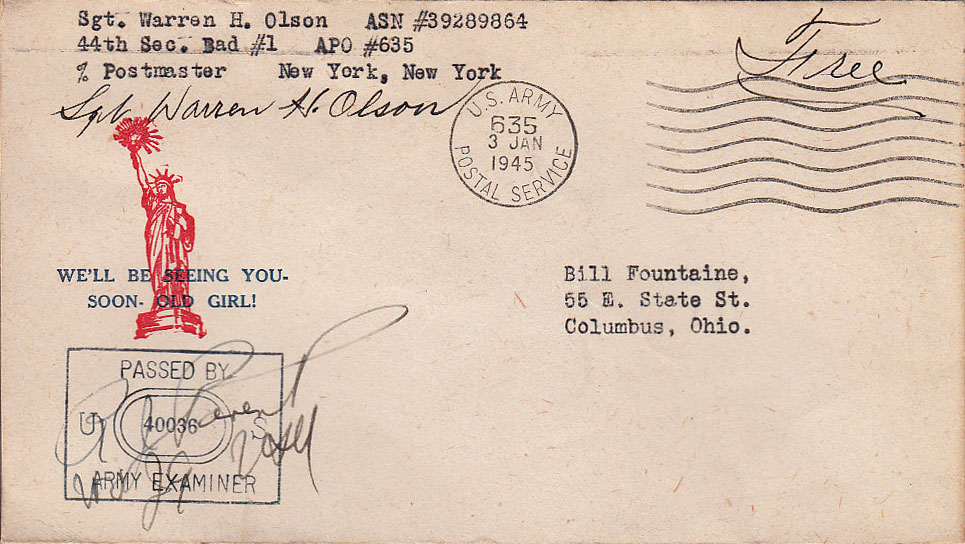 Sgt. Warren H. Olson ASN #39289864
44th Sec. Bad #1 APO #635
% Postmaster New York, New York
Sgt. Warren H. Olson
Free
U.S. ARMY
635
3 JAN
1945
POSTAL SERVICE
WE'LL BE SEEING YOU-
SOON- OLD GIRL!
Bill Fountaine,
55 E. State St.
Columbus, Ohio.
PASSED BY
U 40036 S
ARMY EXAMINER